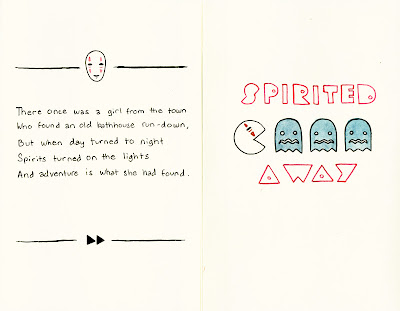 There once was a girl from the town
Who found an old bathhouse run-down,
But when day turned to night
Spirits turned on the lights
And adventure is what she had found.
SPIRITED
AWAY